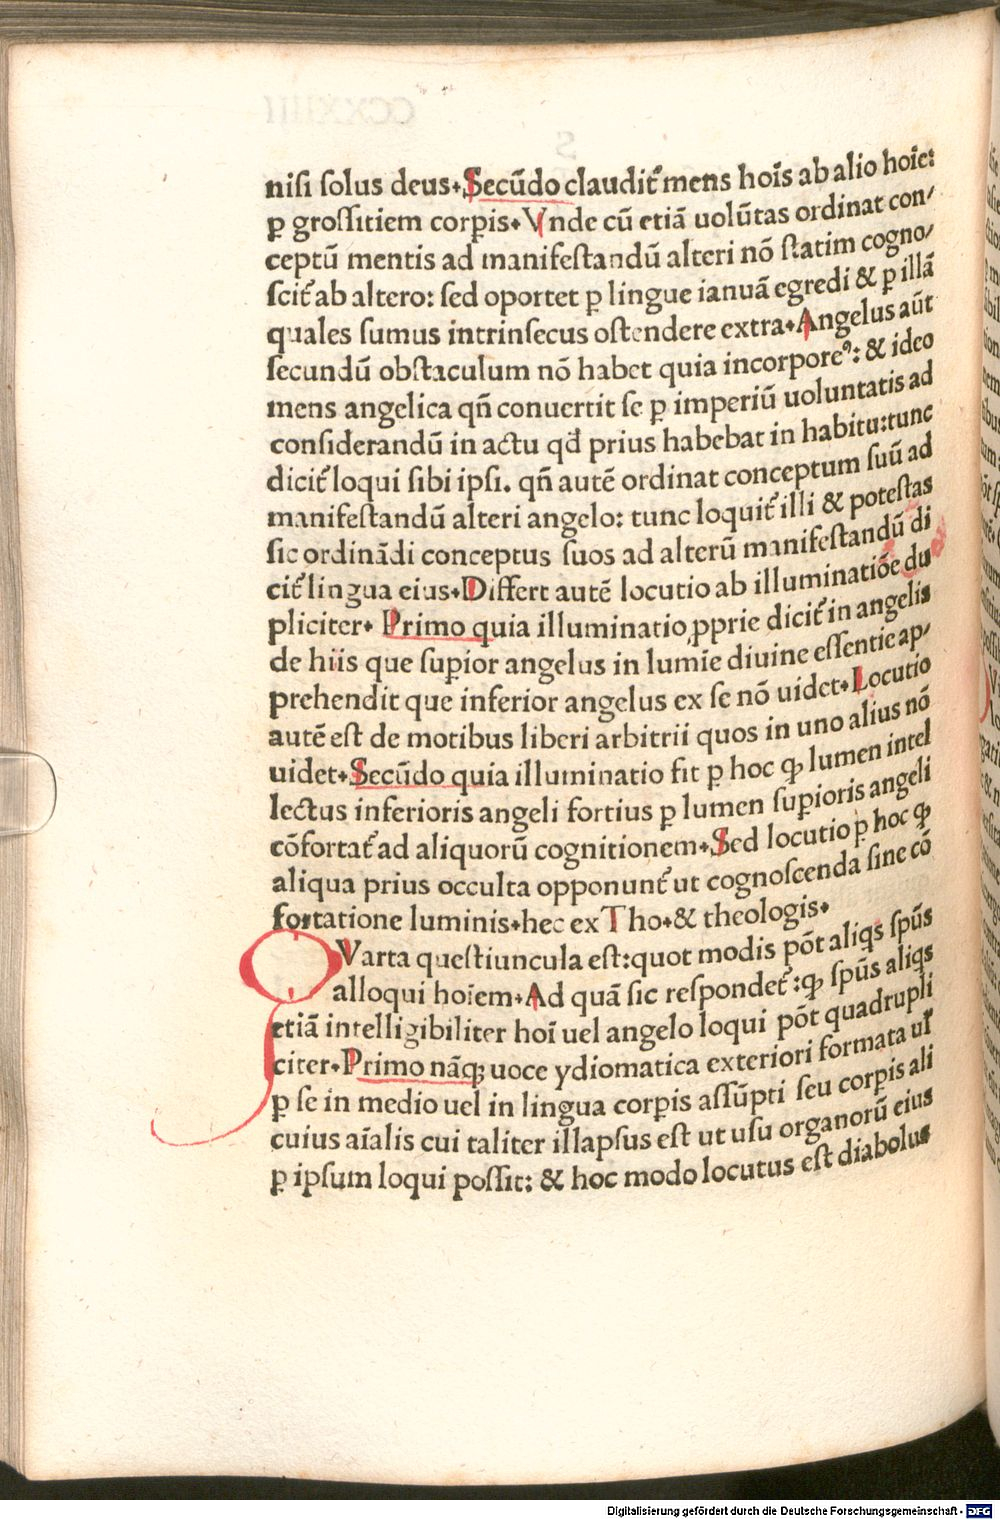 nisi solus deus. Secūdo claudit᷑ mens hoīs ab alio hoīe:
ꝑ grossitiem corꝑis. Vnde cū etiā uolūtas ordinat con-
ceptū mentis ad manifestandū alteri nō statim cogno-
scit᷑ ab altero: sed oportet ꝑ lingue ianuā egredi & ꝑ illā
quales sumus intrinsecus ostendere extra. Angelus aūt
secundū obstaculum nō habet quia incorporeꝰ: & ideo
mens angelica qn̄ conuertit se ꝑ imperiū uoluntatis ad
considerandū in actu qd̄ prius habebat in habitu: tunc
dicit᷑ loqui sibi ipsi. qn̄ autē ordinat conceptum suū ad
manifestandū alteri angelo: tunc loquit᷑ illi & potestas
sic ordinādi conceptus suos ad alterū manifestandū di
cit᷑ lingua eius. Differt autē locutio ab illuminatiōe du
pliciter. Primo quia illuminatio ꝓprie dicit᷑ in angelis
de hiis que suꝑior angelus in lumīe diuine essentie ap-
prehendit que inferior angelus ex se nō uidet. Locutio
autē est de motibus liberi arbitrii quos in uno alius nō
uidet. Secūdo quia illuminatio fit ꝑ hoc ꝙ lumen intel
lectus inferioris angeli fortius ꝑ lumen suꝑioris angeli
cōfortat᷑ ad aliquorū cognitionem. Sed locutio ꝑ hoc ꝙ
aliqua prius occulta opponunt᷑ ut cognoscenda sine cō
fortatione luminis. hec ex Tho. & theologis.
QVarta questiuncula est: quot modis pōt aliqs spūs
alloqui hoīem. Ad quā sic respondet᷑: ꝙ spūs aliqs
etiā intelligibiliter hoī uel angelo loqui pōt quadrupli
citer. Primo nāqꝫ uoce ydiomatica exteriori formata ul̄
ꝑ se in medio uel in lingua corꝑis assūpti seu corꝑis ali
cuius aīalis cui taliter illapsus est ut usu organorū eius
ꝑ ipsum loqui possit: & hoc modo locutus est diabolus
Digitalisierung gefördert durch die Deutsche Forschungsgemeinschaft - DFG